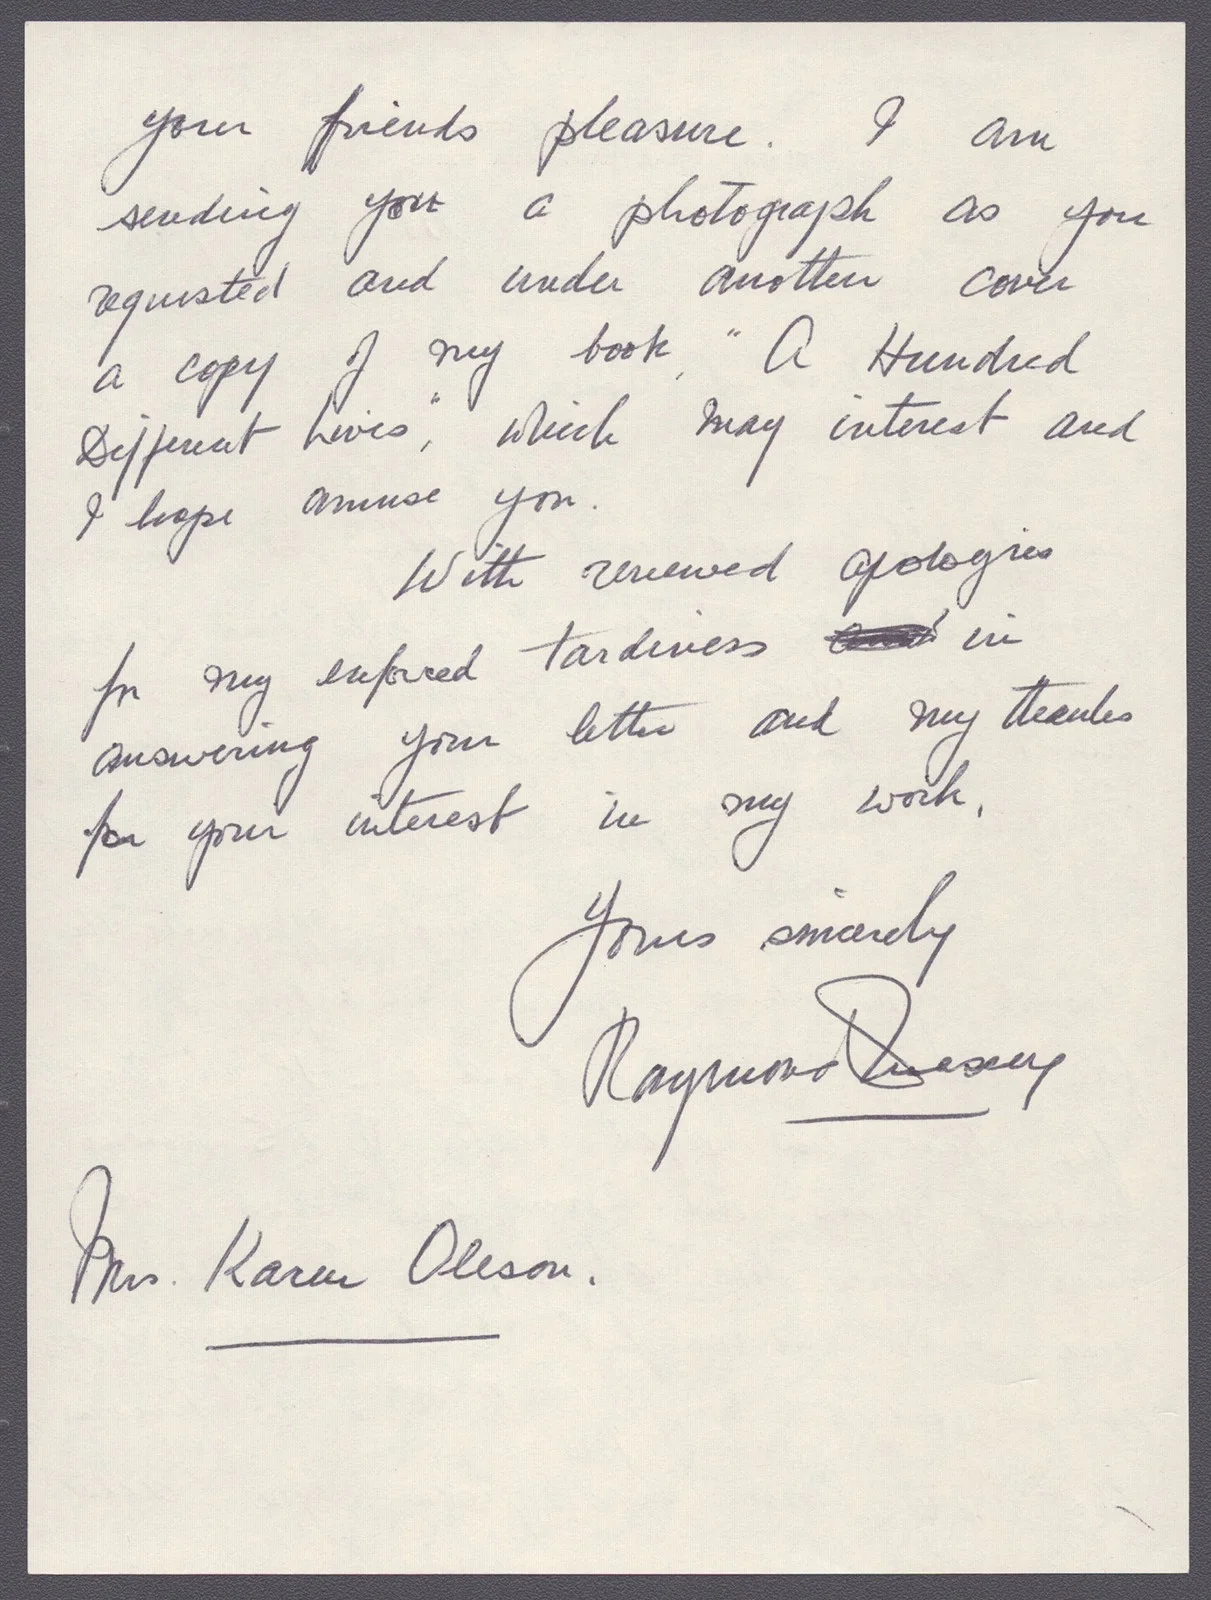 your friends pleasure. I am
sending you a photograph as you
requested and under another cover
a copy of my book, "A Hundred
Different Lives", which may interest and
I hope amuse you.
With renewed apologies
for my enforced tardiness in
answering your letter and my thanks
for your interest in my work.
Yours sincerely
Raymond Massey
Mrs. Karen Oleson.